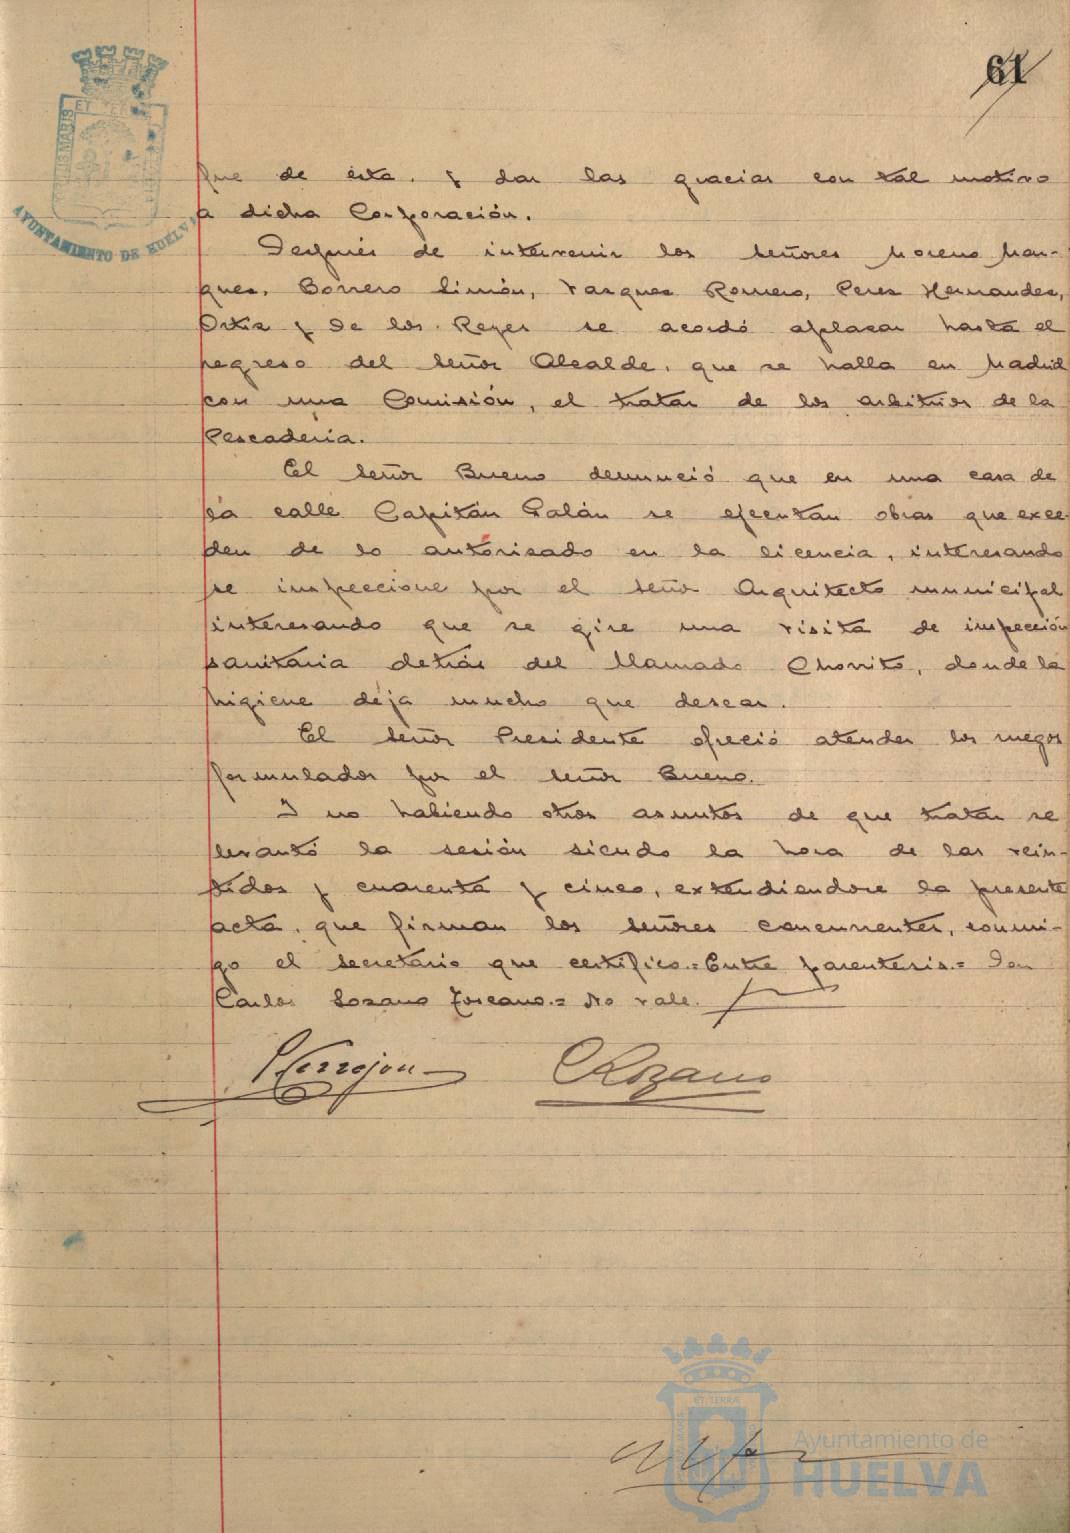 61
ET TERRÆ
US MARIS
AYUNTAMIENTO DE HUELVA
que de ésta, y dar las gracias con tal motivo
a dicha Corporación.
Después de intervenir los señores Moreno Már-
quez, Borrero Limón, Vazquez Romero, Perez Hernandez,
Ortiz y De los Reyes se acordó aplazar hasta el
regreso del señor Alcalde, que se halla en Madrid
con una Comisión, el tratar de los arbitrios de la
Pescadería.
El señor Bueno denunció que en una casa de
la calle Capitán Galán se ejecutan obras que exce-
den de lo autorizado en la licencia, interesando
se inspeccione por el señor Arquitecto municipal
interesando que se gire una visita de inspección
sanitaria detrás del llamado Chorrito, donde la
higiene deja mucho que desear.
El señor Presidente ofreció atender los ruegos
formulados por el señor Bueno.
Y no habiendo otros asuntos de que tratar se
levantó la sesión siendo la hora de las vein-
tidos y cuarenta y cinco, extendiendose la presente
acta, que firman los señores concurrentes, conmi-
go el secretario que certifico.=Entre parentesis.= Don
Carlos Lozano Toscano.= No vale.
Terrejon
CLozano
ET TERRÆ
Ayuntamiento de
HUELVA